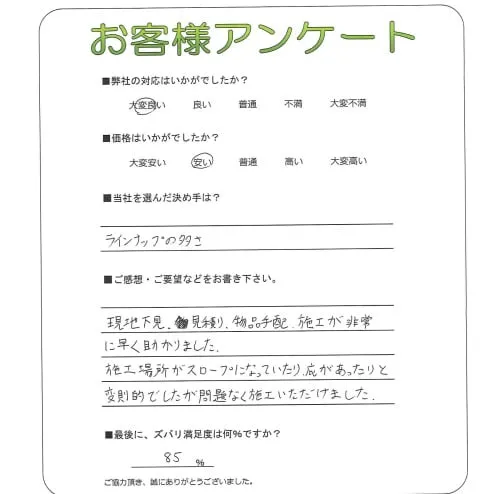 お客様アンケート
■弊社の対応はいかがでしたか?
大変良い 良い 普通 不満 大変不満
■価格はいかがでしたか?
大変安い 安い 普通 高い 大変高い
■当社を選んだ決め手は?
ラインナップの多さ
■ご感想・ご要望などをお書き下さい。
現地下見、見積り、物品手配、施工が非常
に早く助かりました。
施工場所がスロープになっていたり、庇があったりと
変則的でしたが問題なく施工いただけました。
■最後に、ズバリ満足度は何%ですか?
85 %
ご協力頂き、誠にありがとうございました。